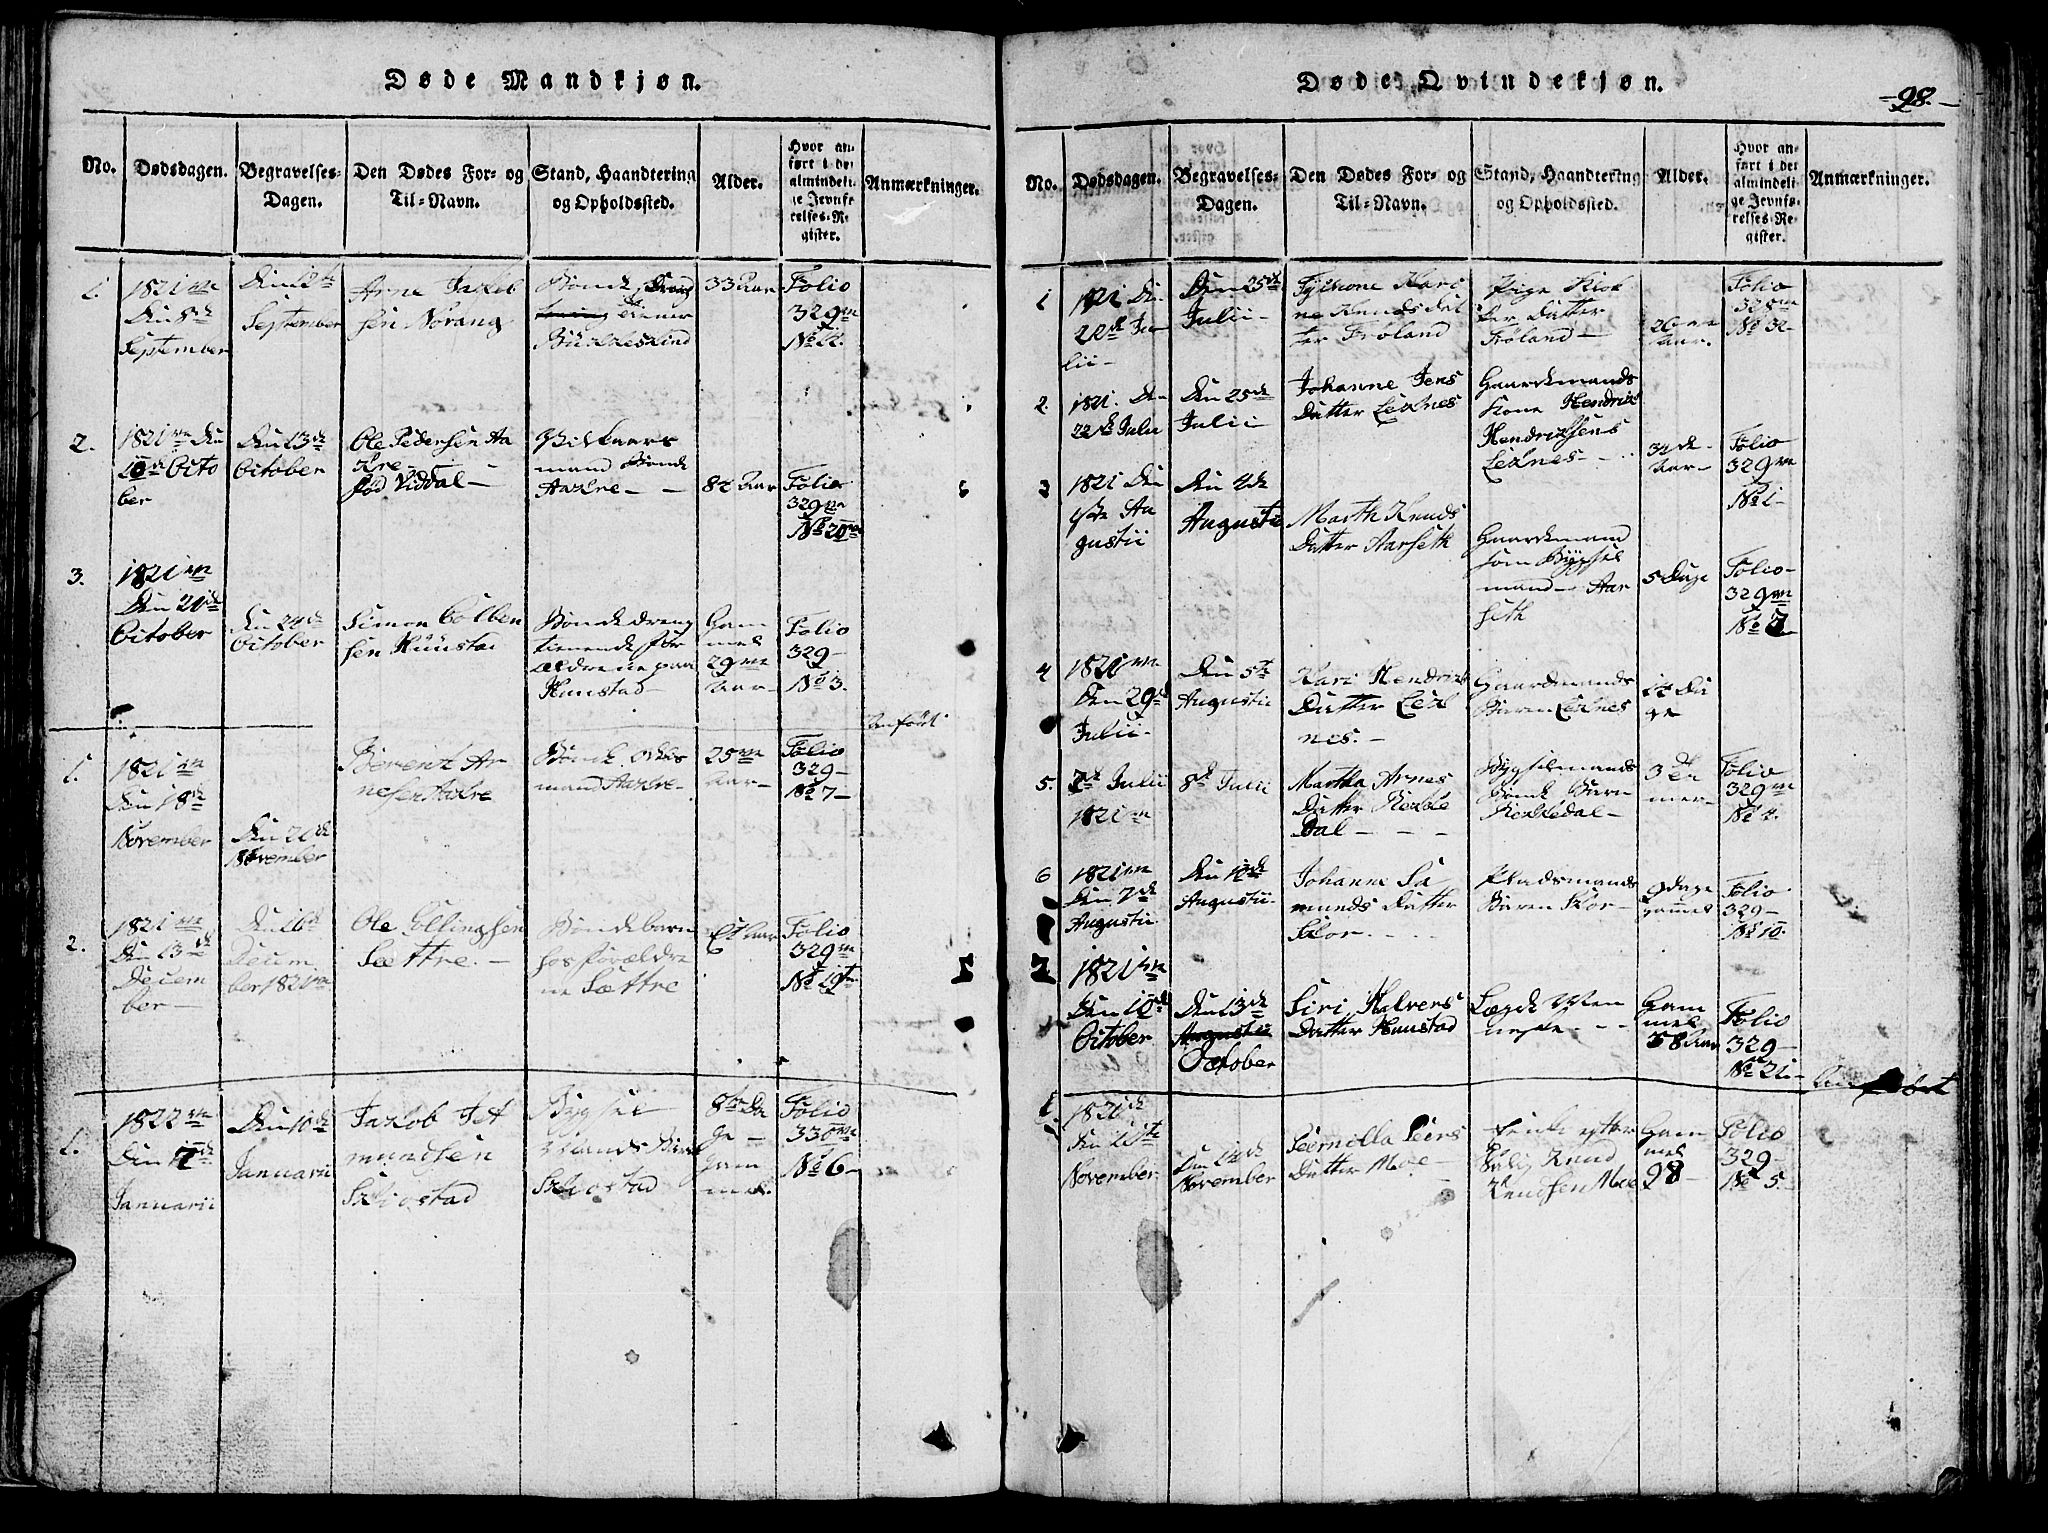 Døde Mandkjøn.
No.
Dødsdagen.
Begravelses-
Dagen.
Den Dødes For- og
Til-Navn.
Stand, Haandtering
og Opholdssted.
Alder.
Hvor an-
ført i det
almindeli-
ge Jevnfø-
relses-Re-
gister.
Anmærkninger.
1.
1821
Den 8de
September
Den 12te
September
Arne Jakob
sen Nørang
Bonde
33 Aar
Folio
329
No
2.
1821 Den
10de Octo
ber
Den 13de
October
Ole Pedersen Aa
Kre
fød Viddal
Vilkaars
mand Bonde
Aakre
82 Aar
Folio
329
No 20
3.
1821
Den 21de
October
Den 24de
October
Simon Colben
sen Hunstad
Bondedreng
tienende for
ældrene paa
Hunstad
Gam
mel
29
Aar
Folio
329
No 3.
Anført
1.
1821
Den 18de
November
Den 21de
November
Berent Ar
nesen Aakre
Bonde
mand Aakre
25
Aar
Folio
329
No 7
2.
1821
Den 13de
Decem
ber
Den 16de
Decem
ber 1821
Ole Ellingsen
Sættre
Bondebarn
hos forældre
ne Sættre
Et Aar
Folio
329
No 19
1.
1822
Den
Januarii
Den 10de
Januarii
Jakob Jet
mundsen
Skiostad
Bygsel
Mands Barn
Skiostad
8te Da
ge
Gam
mel
Folio
330
No 6
Døde Qvindekjøn.
98.
No.
Dødsdagen.
Begravelses-
Dagen.
Den Dødes For- og
Til-Navn.
Stand, Haandtering
og Opholdssted.
Alder.
Hvor an-
ført i det
almindeli-
ge Jevnfø-
relses-Re-
gister.
Anmærkninger.
1
1821 Den
22de Ju
lii
Den 25de
Julii
Kari
ne Knuds Dat
ter Frøland
Pige
Datter
26
Aar.
Folio
328
No 32
2.
1821. De
22de Julii
Den 25de
Julii
Johanne Jens
Datter Eexnes
Gaardmands
Kone Hendrik
Hendriksens
Eexnes
Aar
Folio
329
No 1
3
1821 Den
Au
gustii
Den 4de
Augustii
Marth Knuds
Datter Aarseth
Gaardmand
som Bygsel
mand Aar
seth
5 Dage
Folio
329
No
4
1821
Den 29de
Julii
Den 5te
Augustii
Kari Hendriks
Datter Eex
nes.
Gaardmands
Barn Eexnes
14 Da
ge
5.
7de Julii
1821
8de Julii
Martha Arnes
Datter
Dal
Bygselmands
Bonde Barn
3 De
mer
Folio
329
No 4.
6
1821
Den 7de
Augustii
Den 12de
Augustii
Johanne Sa
munds Datter
Skor
Pladsmands
Barn Skor
9 dage
gammel
Folio
329
No 10.
7
1821
Den 10de
October
Den 13de
Augustii
October
Siri Halvers
Datter Hunstad
Lægd Men
neske
Gam
mel
58 Aar
Folio
329
No 21
Anført
1.
1821
Den
November
Den 14de
November
Peernilla Peers
Datter Moe
Enke efter
Salig Knud
Knudsen Moe
Gam
mel
98
Folio
329
No 5.